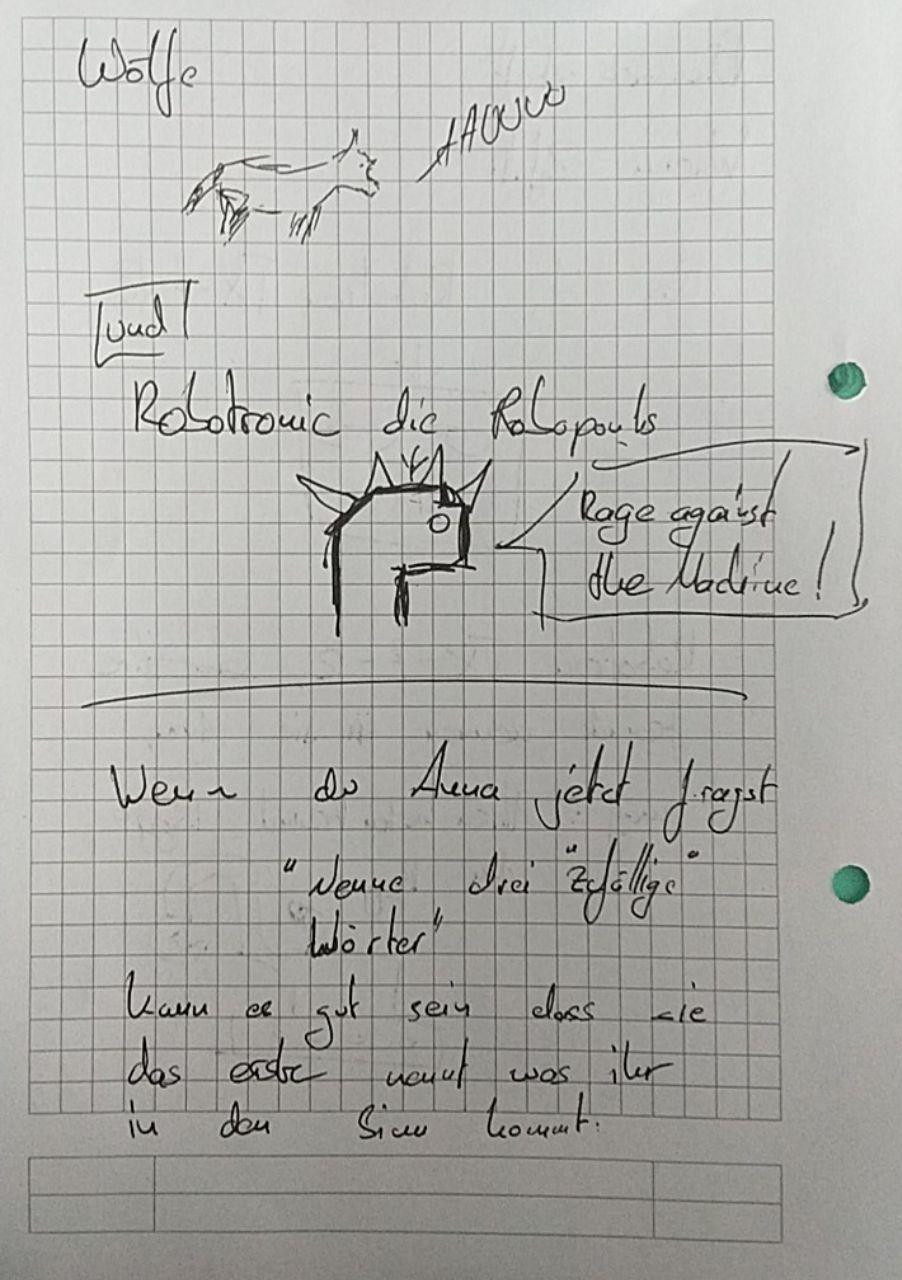 Wölfe
AAOUUU
und
Robotronic die Robopouts
Rage against
the Machine!
Wenn du Anna jetzt fragst
"Nenne drei "Zufällige"
Wörter"
kann es gut sein dass sie
das erste nennt was ihr
in den Sinn kommt.